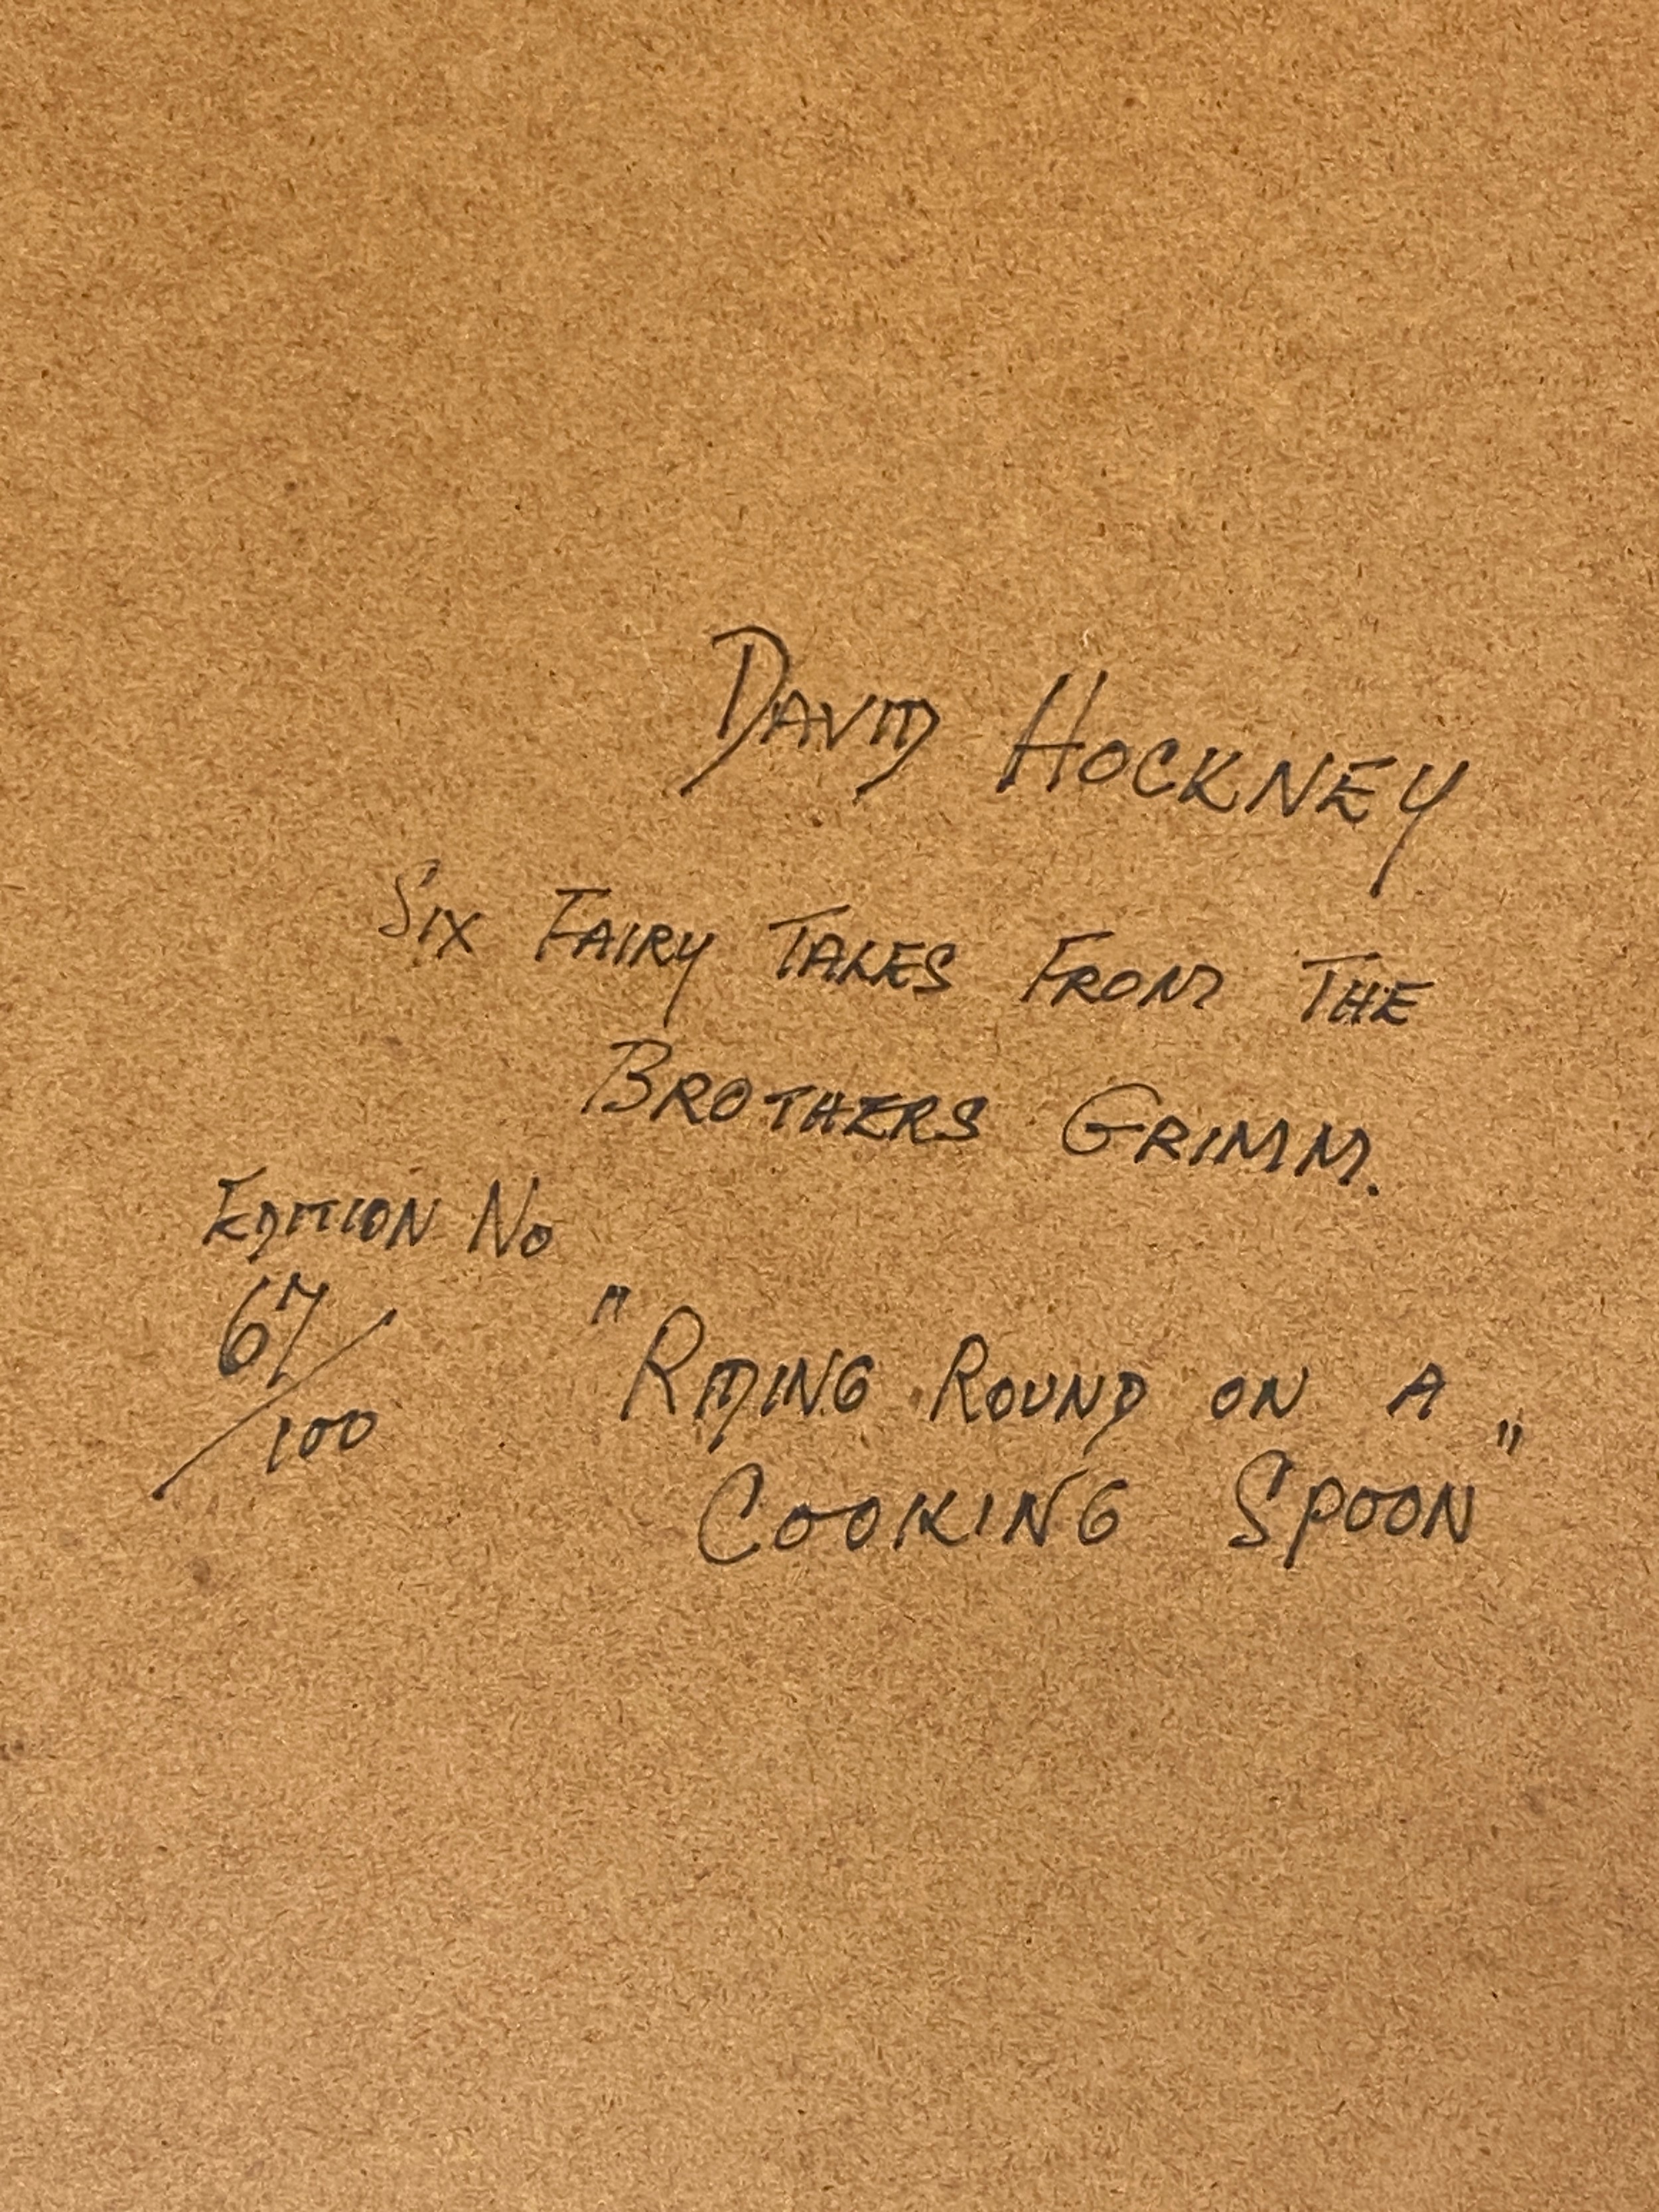 DAVID HOCKNEY
SIX FAIRY TALES FROM THE
BROTHERS GRIMM.
EDITION NO
67/100
"RIDING ROUND ON A
COOKING SPOON"